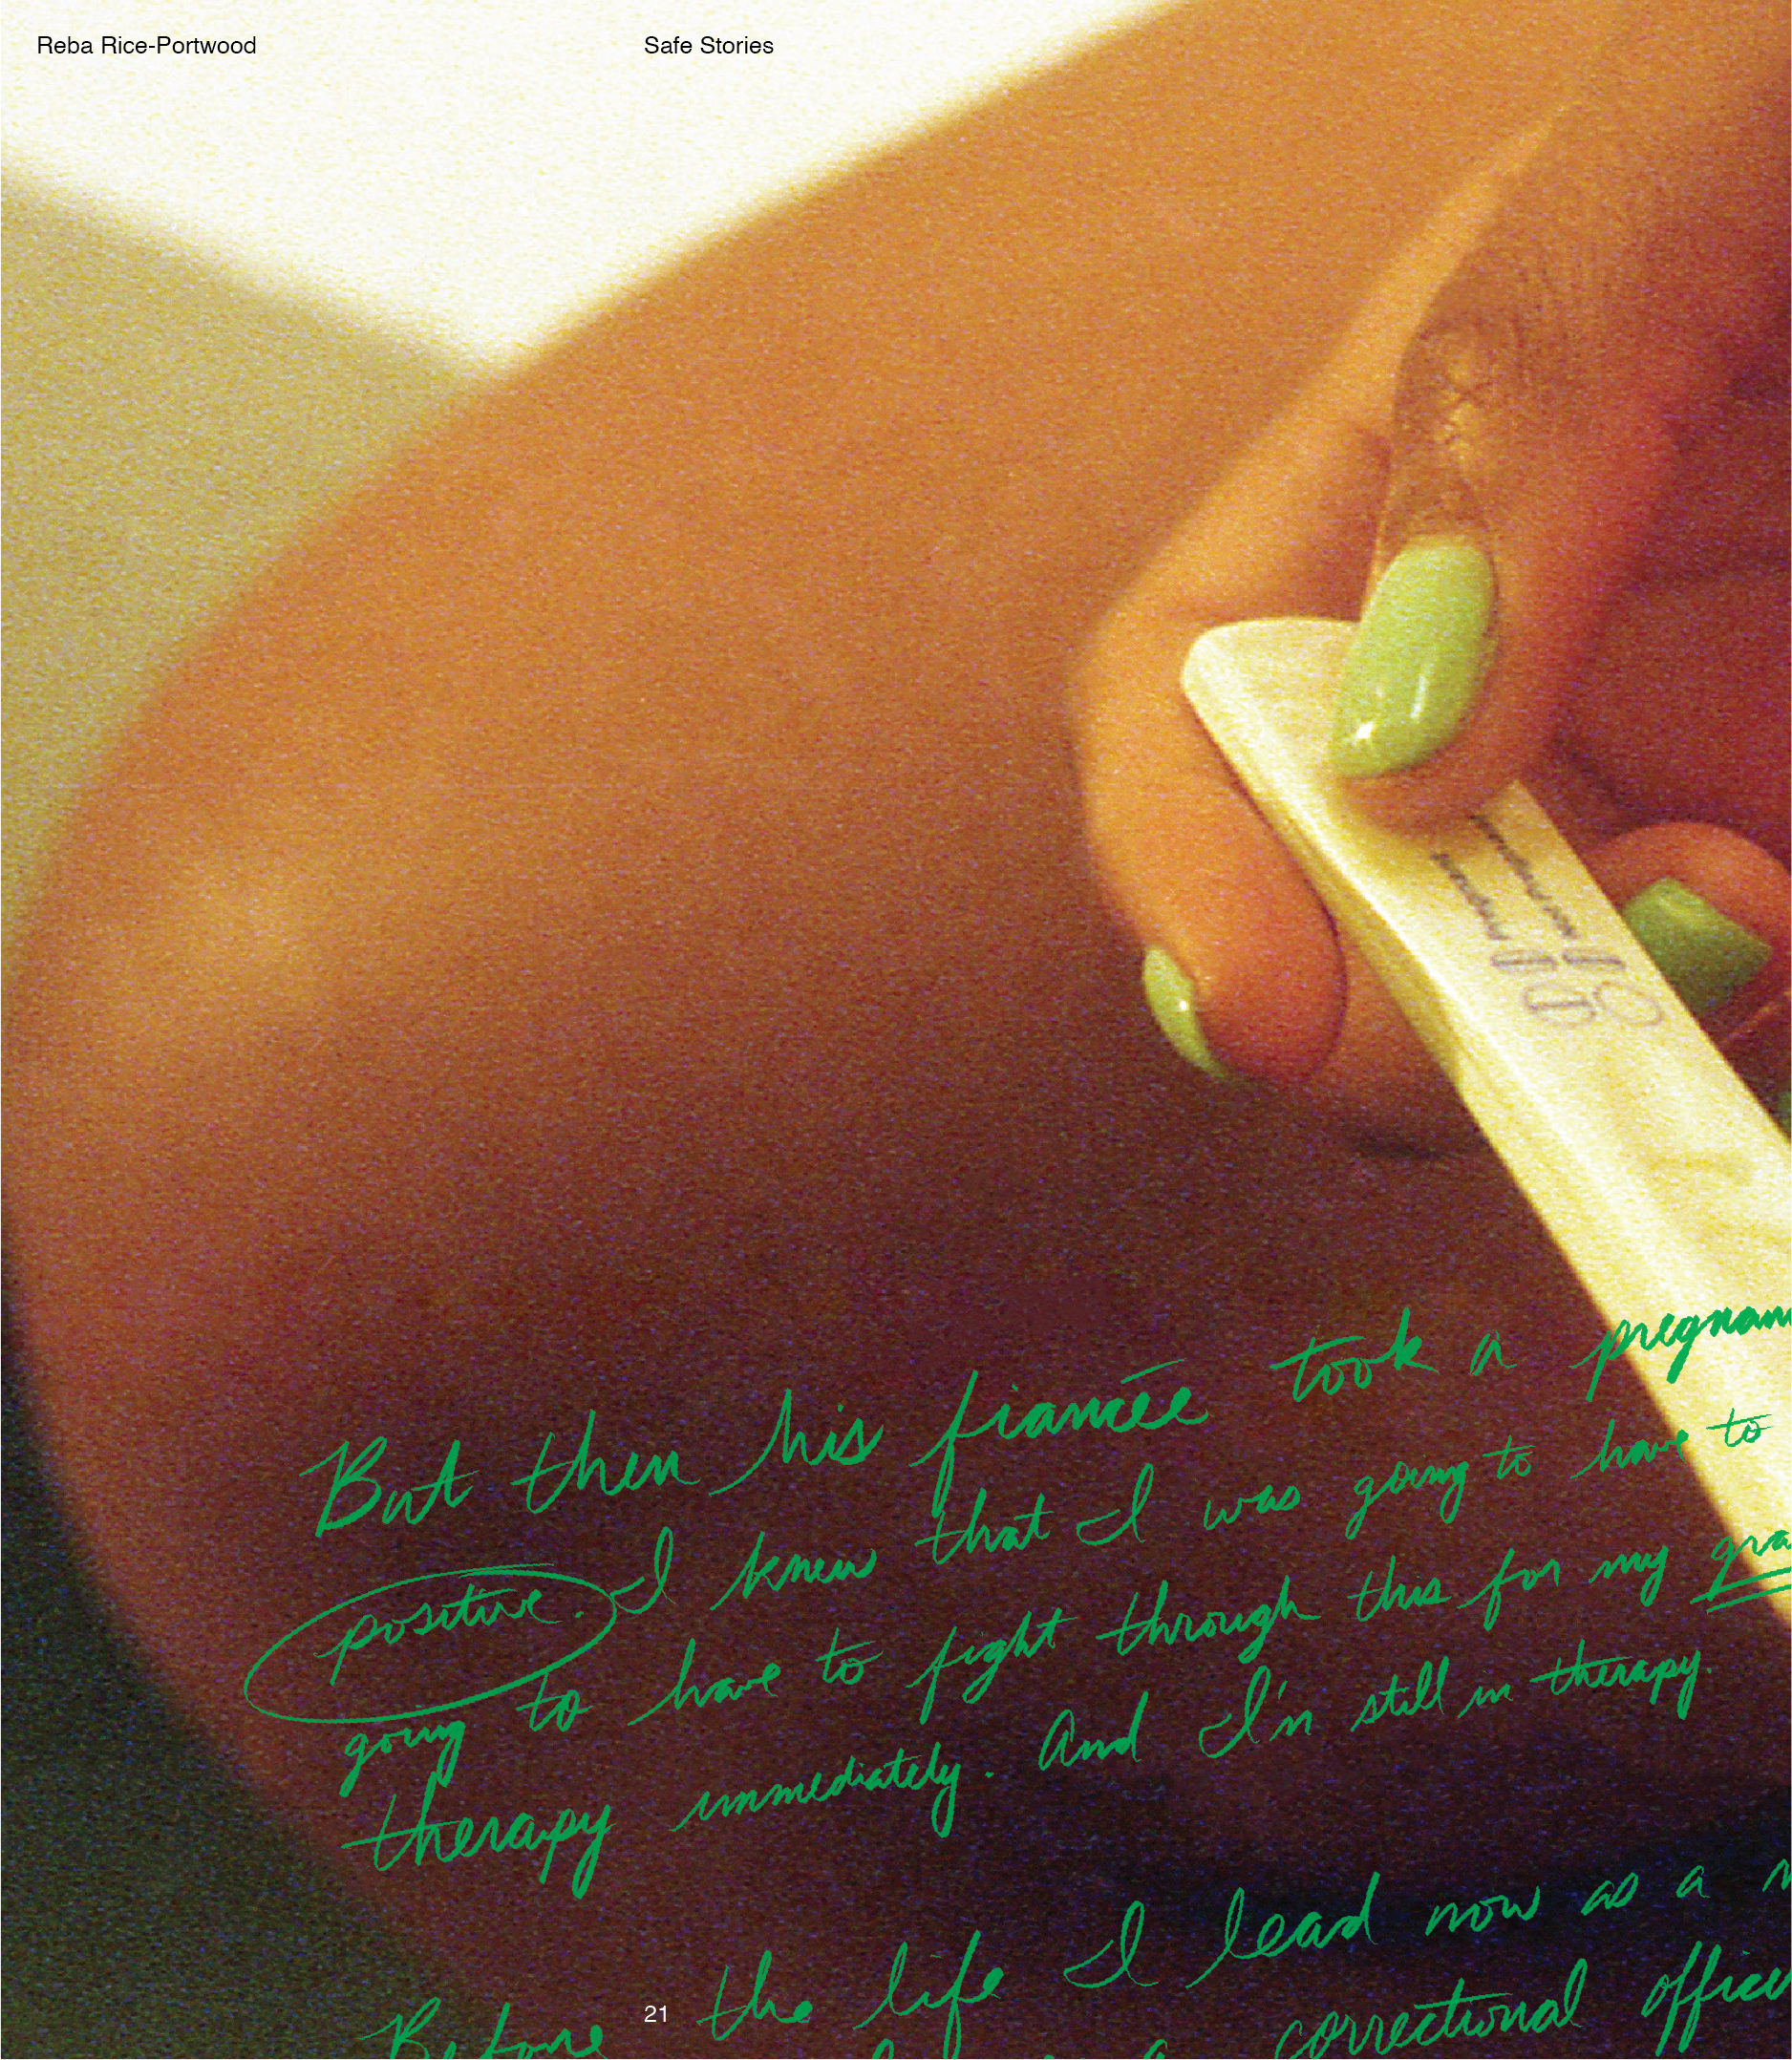 Reba Rice-Portwood
Safe Stories
But then his fiancée took a pregnan
positive. I knew that I was going to have to
going to have to fight through this for my gra
therapy immediately. And I'm still in therapy.
Before the life I lead now as a
a correctional office
21